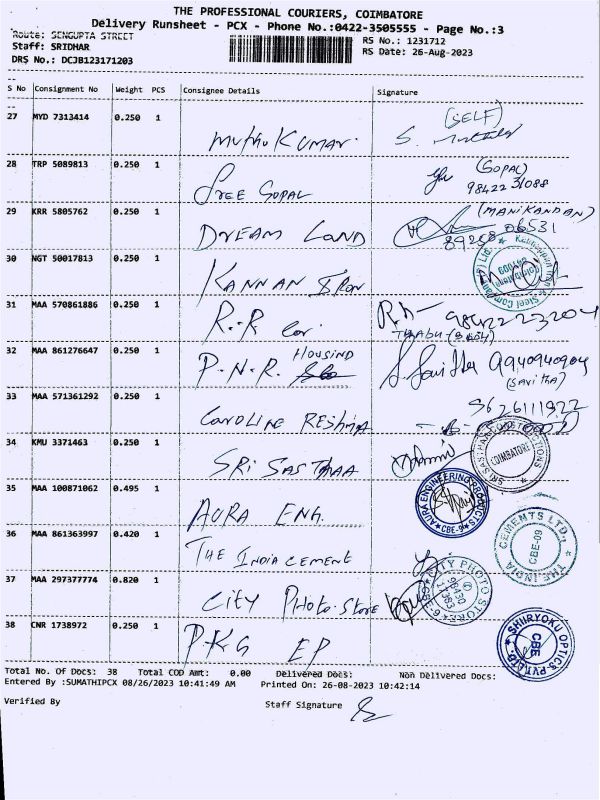 THE PROFESSIONAL COURIERS, COIMBATORE
Delivery Runsheet - PCX - Phone No.:0422-3505555 - Page No.:3
Route: SENGUPTA STREET
RS No.: 1231712
Staff: SRIDHAR
RS Date: 26-Aug-2023
DRS No.: DCJB123171203
S No Consignment No Weight PCS Consignee Details Signature
27 MYD 7313414 0.250 1 Muthu Kumar (SELF)
28 TRP 5089813 0.250 1 Sree Gopal (GOPAL)
98422 31088
29 KRR 5805762 0.250 1 Dream Land (MANIKANDAN)
30 NGT 50017813 0.250 1 Kannan Iron
31 MAA 570861886 0.250 1 R.R Cor. 9842223204
32 MAA 861276647 0.250 1 P.N.R. Housing
(Savitha)
33 MAA 571361292 0.250 1 Caroline Reshma 9626111922
34 KMU 3371463 0.250 1 Sri Sasthaa
SRI SASTHAA CONSTRUCTIONS COIMBATORE
35 MAA 100871062 0.495 1 Aura Eng.
AURA ENGINEERING PRODUCTS
36 MAA 861363997 0.420 1 The India Cement
THE INDIA CEMENTS LTD., CBE-09
37 MAA 297377774 0.820 1 City Photo Store
CITY PHOTO STORE
38 CNR 1738972 0.250 1 PKG EP
SHIRYOKU OPTICS PVT. LTD. CBE
Total No. Of Docs: 38 Total COD Amt: 0.00 Delivered Docs: Non Delivered Docs:
Entered By :SUMATHIPCX 08/26/2023 10:41:49 AM Printed On: 26-08-2023 10:42:14
Verified By Staff Signature